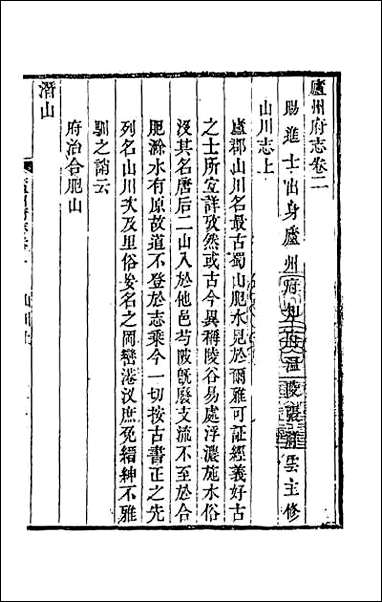 廬州府志卷二
賜進士出身廬州府知府溫陵張祥雲主修
山川志上
廬郡山川名最古蜀山肥水見於爾雅可証經義好古
之士所宜詳攷然或古今異稱陵谷易處浮濃施水俗
沒其名唐后二山入於他邑芍陂旣廢支流不至於合
肥滁水有原故道不登於志乘今一切按古書正之先
列名山川次及里俗妄名之岡巒港汊庶免縉紳不雅
馴之誚云
府治合肥山
潛山